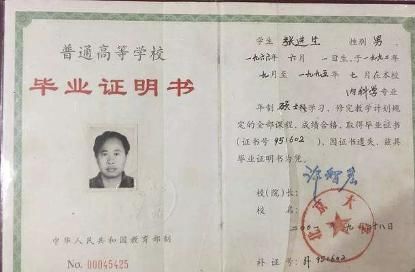 普通高等学校
毕业证明书
中华人民共和国教育部制
No. 00045425
学生 张进生 性别 男,
一九六六年 六月 一日生,于一九九二年
九月至一九九五年 七月在本校
内科学专业
年制 硕士 学习,修完教学计划规
定的全部课程,成绩合格,取得毕业证书
(证书号 951602),因证书遗失,兹具
毕业证明书为凭。
校(院)长:
校 名:
二00一 年九月十八日
补 证 号: 951602